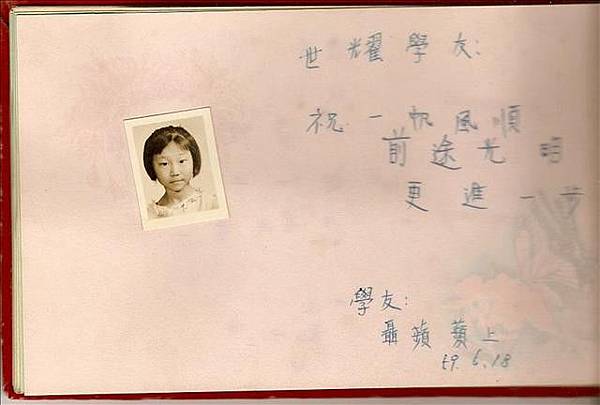 世耀學友:
祝一帆風順
前途光明
更進一步
學友:
聶蘋蘋上
59.6.18